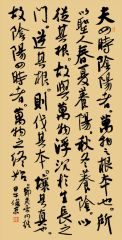 夫四時陰陽者萬物之根本也所
以聖人春夏養陽秋冬養陰以
從其根故與萬物浮沉於生長之
門逆其根則伐其本壞其真矣
故陰陽四時者萬物之終始